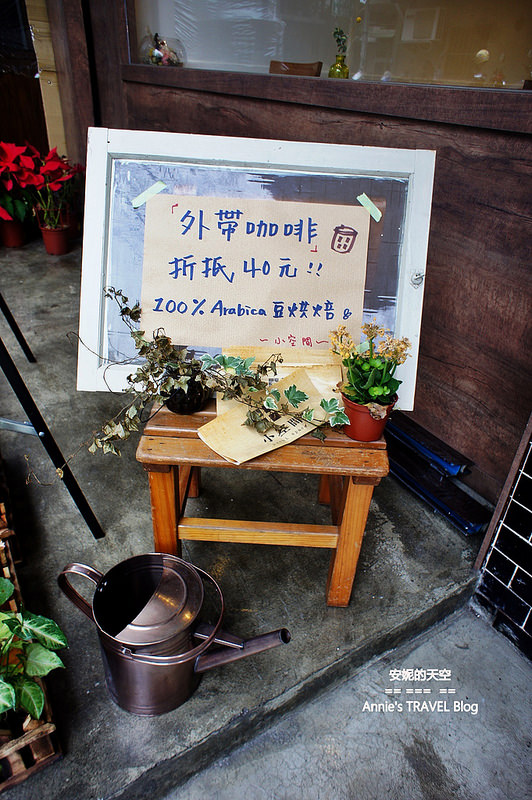 「外帶咖啡」
折抵40元!!
100% Arabica豆烘焙
~小空間~
小空間
安妮的天空
== === ==
Annie's TRAVEL Blog